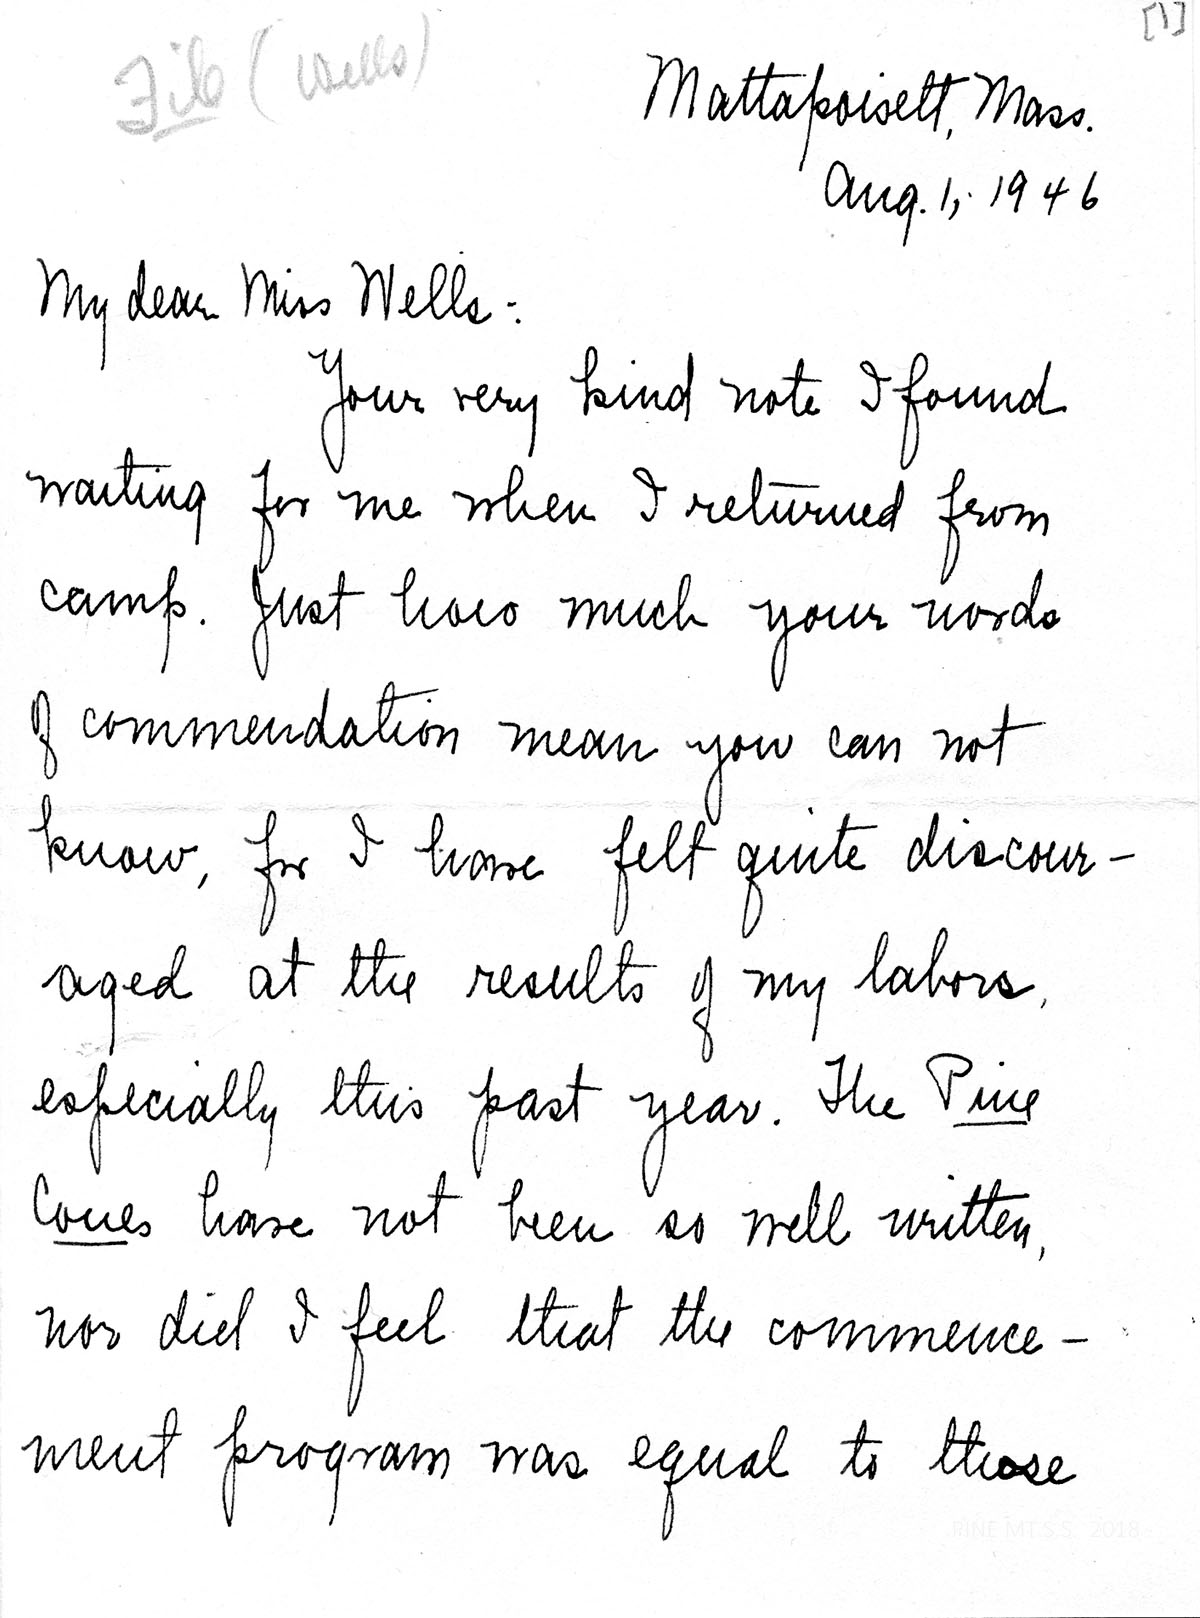 [1]
File (Wells)
Mattapoisett, Mass.
Aug. 1, 1946
My dear Miss Wells:
Your very kind note I found
waiting for me when I returned from
camp. Just how much your words
of commendation mean you can not
know, for I have felt quite discour-
aged at the results of my labors,
especially this past year. The Pine
Cones have not been so well written,
nor did I feel that the commence-
ment program was equal to those
PINE MT.S.S. 2018